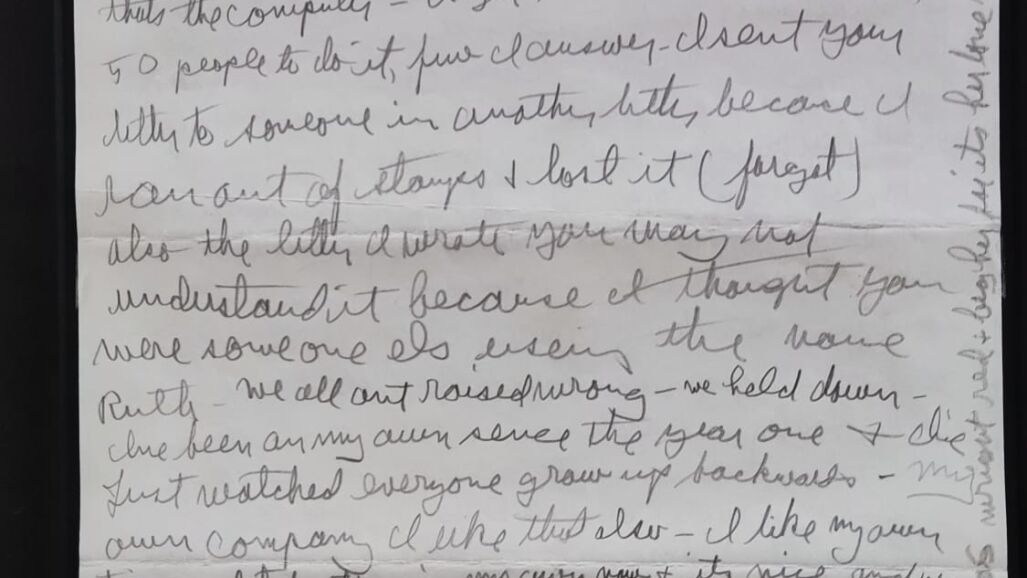 thats the computer
50 people to do it, few I answer - I sent your
letter to someone in another letter because I
ran out of stamps & lost it (forgot)
also the letter I wrote you may not
understand it because I thought you
were someone els using the name
Ruth - we all ant raised wrong - we held down -
I've been on my own sence the year one & I've
Just watched everyone grow up backwards - my
own company I like that also - I like my own